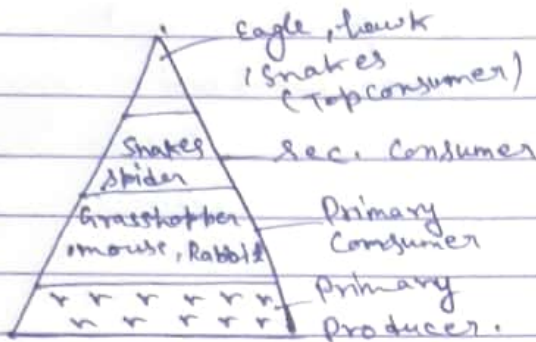 Eagle, hawk
, Snakes
(Top consumer)
Snakes
spider
Sec. Consumer
Grasshopper
, mouse, Rabbit
Primary
Comsumer
Primary
Producer.